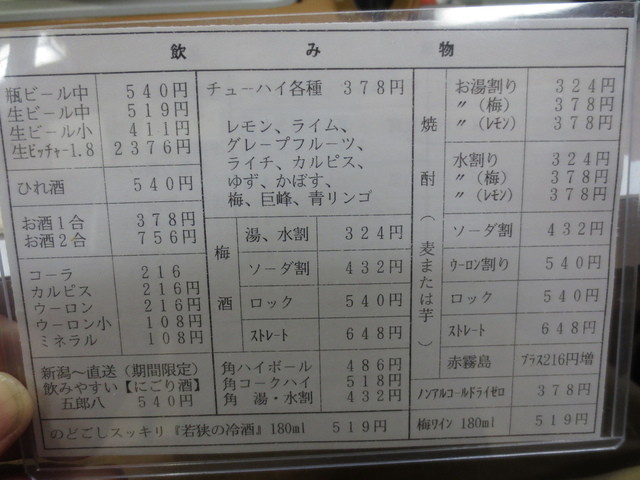 飲み物
瓶ビール中 540円
生ビール中 519円
生ビール小 411円
生ピッチャー1.8 2376円
ひれ酒 540円
お酒1合 378円
お酒2合 756円
コーラ 216
カルピス 216円
ウーロン 216円
ウーロン小 108円
ミネラル 108円
新潟〜直送(期間限定)
飲みやすい【にごり酒】
五郎八 540円
チューハイ各種 378円
レモン、ライム、
グレープフルーツ、
ライチ、カルピス、
ゆず、かぼす、
梅、巨峰、青リンゴ
梅酒
湯、水割 324円
ソーダ割 432円
ロック 540円
ストレート 648円
角ハイボール 486円
角コークハイ 518円
角 湯・水割 432円
のどごしスッキリ『若狭の冷酒』180ml 519円
焼酎(麦または芋)
お湯割り 324円
〃(梅) 378円
〃(レモン) 378円
水割り 324円
〃(梅) 378円
〃(レモン) 378円
ソーダ割 432円
ウーロン割り 540円
ロック 540円
ストレート 648円
赤霧島 プラス216円増
ノンアルコールドライゼロ 378円
梅ワイン 180ml 519円